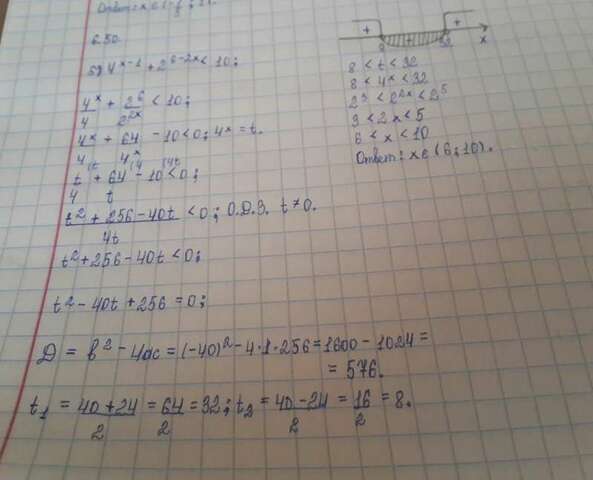 Ответ: x ∈ (
650
4^(x-1) + 2^(6-2x) < 10;
4^x/4 + 2^6/2^(2x) < 10;
4^x/4 + 64/4^x - 10 < 0; 4^x = t.
t/4 + 64/t - 10 < 0;
(t² + 256 - 40t)/4t < 0; О.Д.З. t ≠ 0.
t² + 256 - 40t < 0;
t² - 40t + 256 = 0;
D = b² - 4ac = (-40)² - 4·1·256 = 1600 - 1024 =
= 576.
t₁ = (40 + 24)/2 = 64/2 = 32; t₂ = (40 - 24)/2 = 16/2 = 8.
+ - +
8 32 x
8 < t < 32
8 < 4^x < 32
2³ < 2^(2x) < 2⁵
3 < 2x < 5
6 < x < 10
Ответ: x ∈ (6; 10).